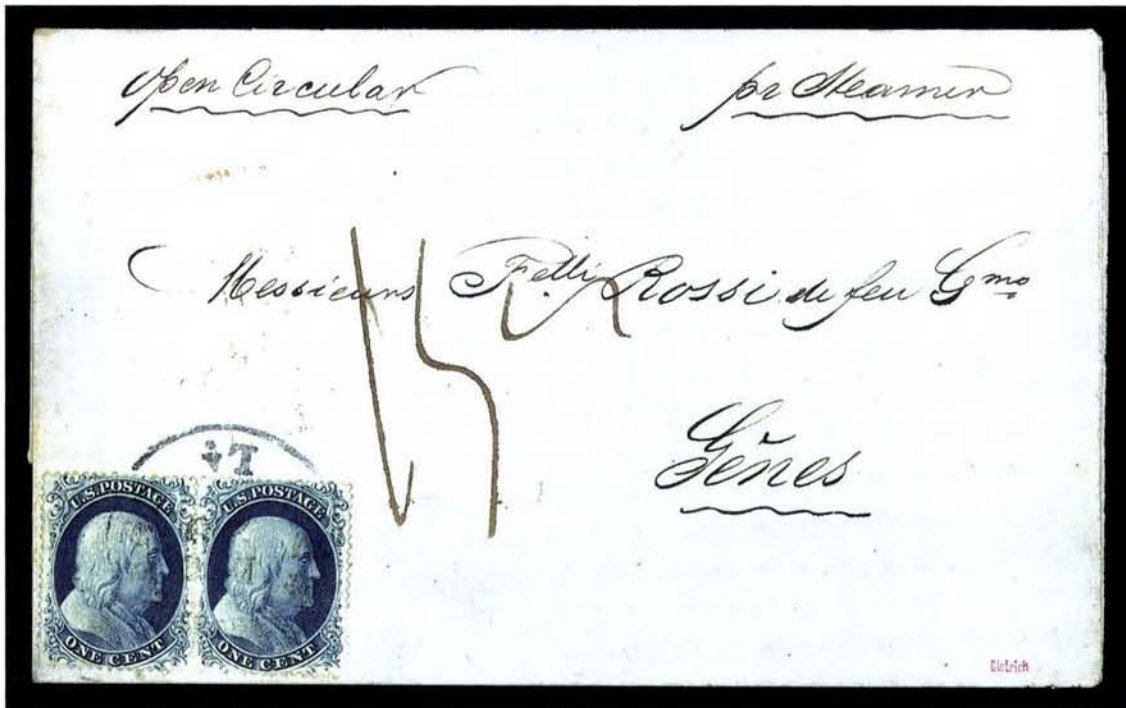 open Circular
pr Steamer
Messieurs Felli Rossi de feu Gmo
15
Gênes
U.S. POSTAGE
ONE CENT
U.S. POSTAGE
ONE CENT
Dietrich